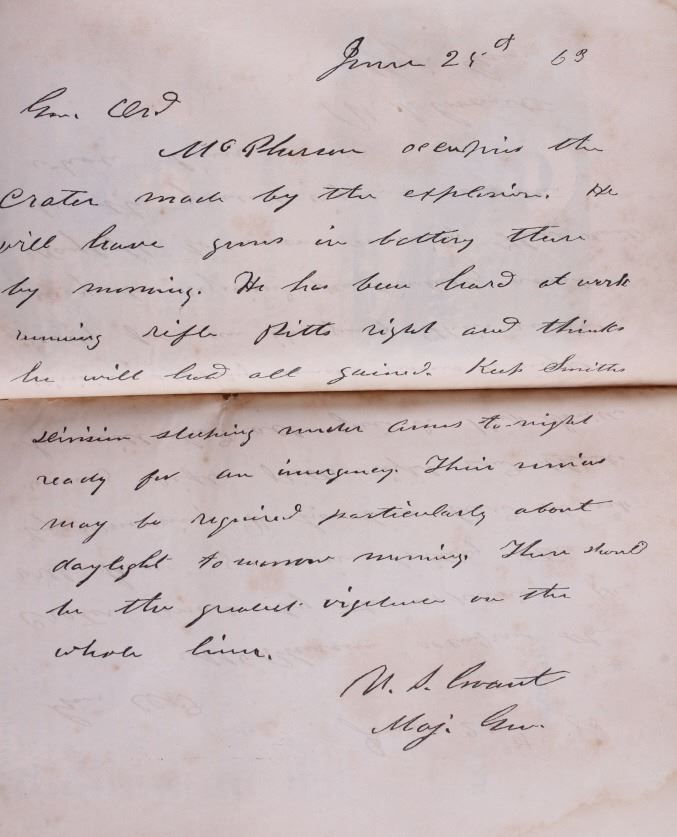 June 25th 63
Gen. Ord
McPherson occupies the
Crater made by the explosion. He
will have guns in battery there
by morning. He has been hard at work
running rifle Pitts right and thinks
he will hold all gained. Keep Smiths
Division sleeping under arms to-night
ready for an imergency. Their services
may be required particularly about
daylight to morrow morning. There should
be the greatest vigilence on the
whole line.
U. S. Grant
Maj. Gen.